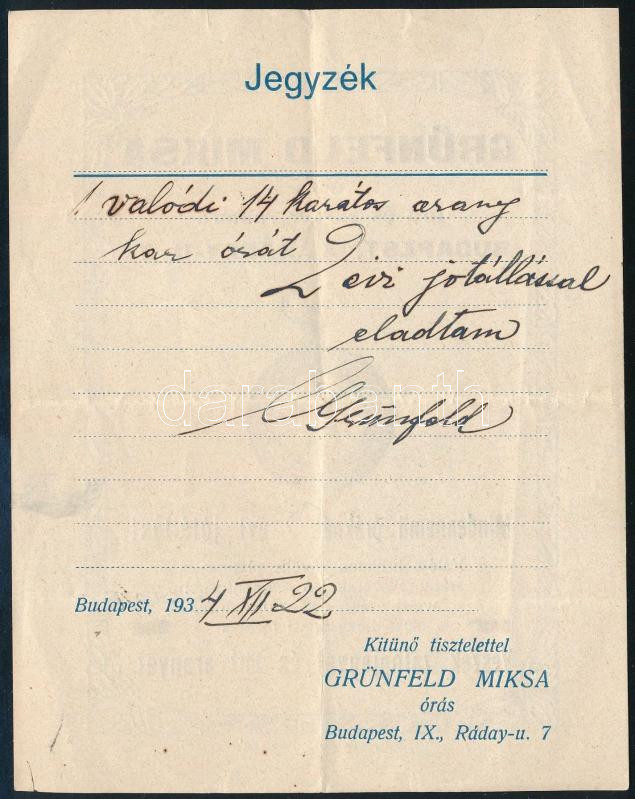 Jegyzék
1 valódi 14 karátos arany
kar órát 2 évi jótállással
eladtam
Grünfeld
darabanth
Budapest, 1934 XII. 22
Kitünő tisztelettel
GRÜNFELD MIKSA
órás
Budapest, IX., Ráday-u. 7